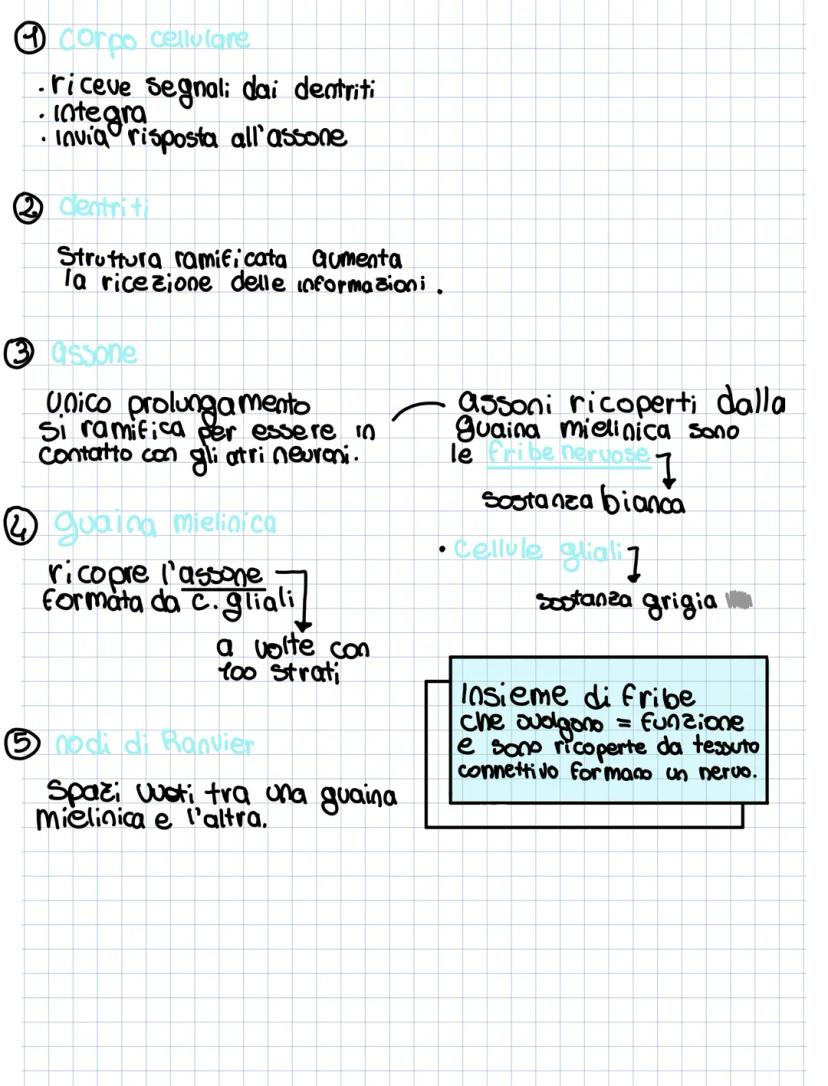 1 corpo cellulare
· riceve segnali dai dentriti
· integra
· invia risposta all'assone
2 dentriti
Struttura ramificata aumenta
la ricezione delle informazioni.
3 assone
Unico prolungamento
si ramifica per essere in
contatto con gli atri neuroni.
assoni ricoperti dalla
guaina mielinica sono
le fribe nervose
sostanza bianca
4 guaina mielinica
ricopre l'assone
formata da c. gliali
a volte con
100 strati
· cellule gliali
sostanza grigia
Insieme di fribe
che svolgono = funzione
e sono ricoperte da tessuto
connettivo formano un nervo.
5 nodi di Ranvier
Spazi vuoti tra una guaina
mielinica e l'altra.